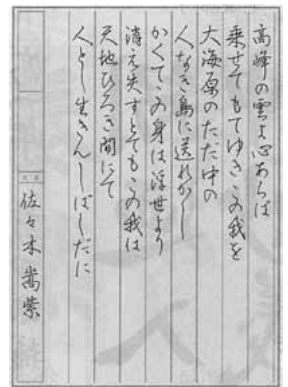 高峰の雲よ心あらは
乗せてもてゆきこの我を
大海原のただ中の
人なき島に送れかし
かくてこの身は浮世より
消え失すとてもこの我は
天地ひろき間にて
人とし生きんしばしだに
佐々木嵩紫